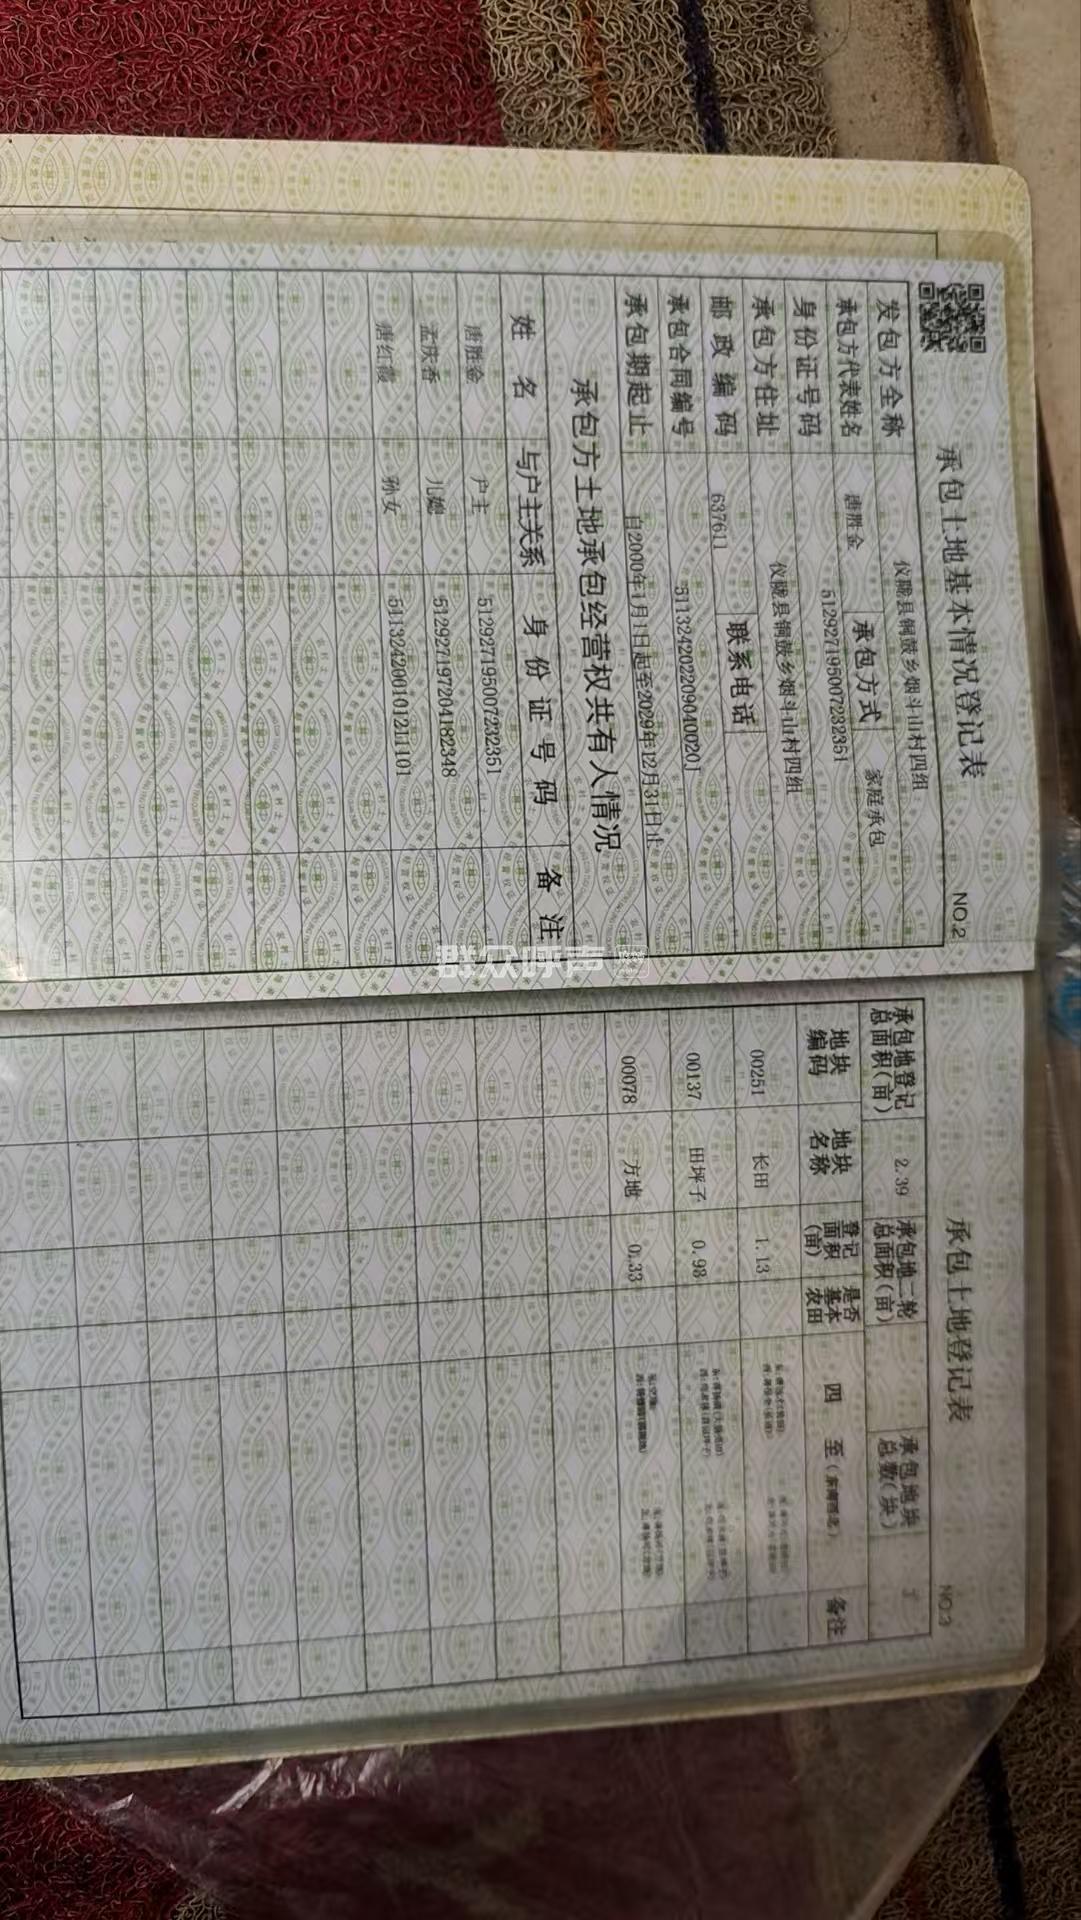 承包土地基本情况登记表
NO.2
发包方全称 仪陇县铜鼓乡烟斗山村四组
承包方代表姓名 唐胜金 承包方式 家庭承包
身份证号码 512927195007232351
承包方住址 仪陇县铜鼓乡烟斗山村四组
邮政编码 637611 联系电话
承包合同编号 511324202209040020J
承包期起止 自2000年1月1日起至2029年12月31日止
承包方土地承包经营权共有人情况
姓名 与户主关系 身份证号码 备注
唐胜金 户主 512927195007232351
孟庆香 儿媳 512927197204182348
唐红霞 孙女 511324200101211101
群众呼声
承包土地登记表
NO.3
承包地登记总面积(亩) 2.39 承包地二轮总面积(亩) 承包地块总数(块) 3
地块编码 地块名称 登记面积(亩) 是否基本农田 四至(东南西北) 备注
00251 长田 1.13
00137 田坪子 0.93
00078 方地 0.33